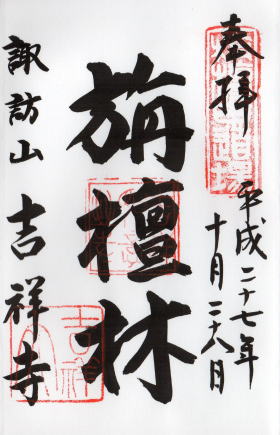 奉拝
平成二十七年
十月二十六日
旃檀林
諏訪山 吉祥寺